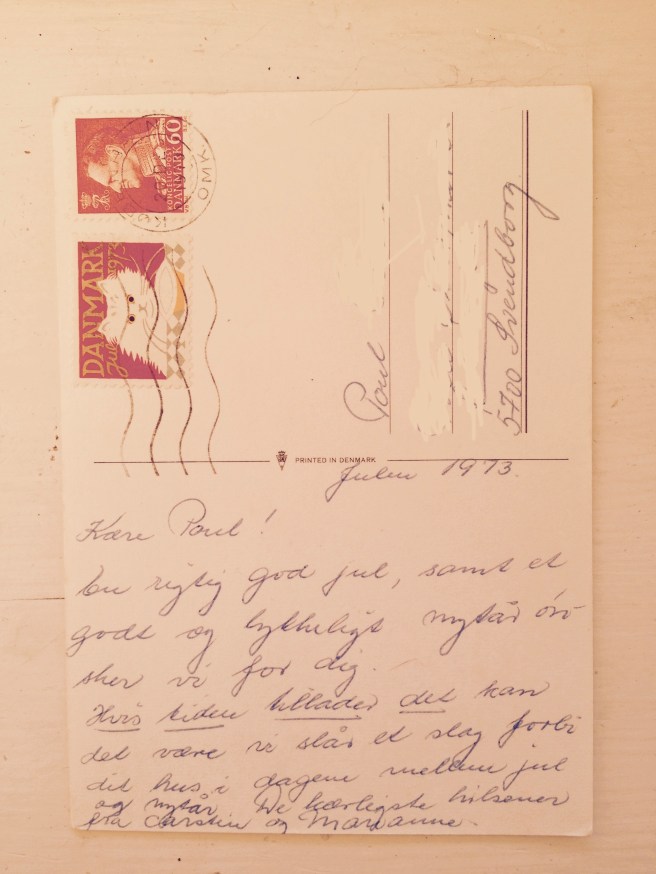 KONGELIG POST
DANMARK 60
OMK
DANMARK
Jul 1973
Poul
5700 Svendborg
PRINTED IN DENMARK
Julen 1973.
Kære Poul!
En rigtig god jul, samt et
godt og lykkeligt nytår øn-
sker vi for dig.
Hvis tiden tillader det kan
det være vi slår et slag forbi
dit hus i dagene mellem jul
og nytår. De kærligste hilsener
fra Carsten og Marianne.